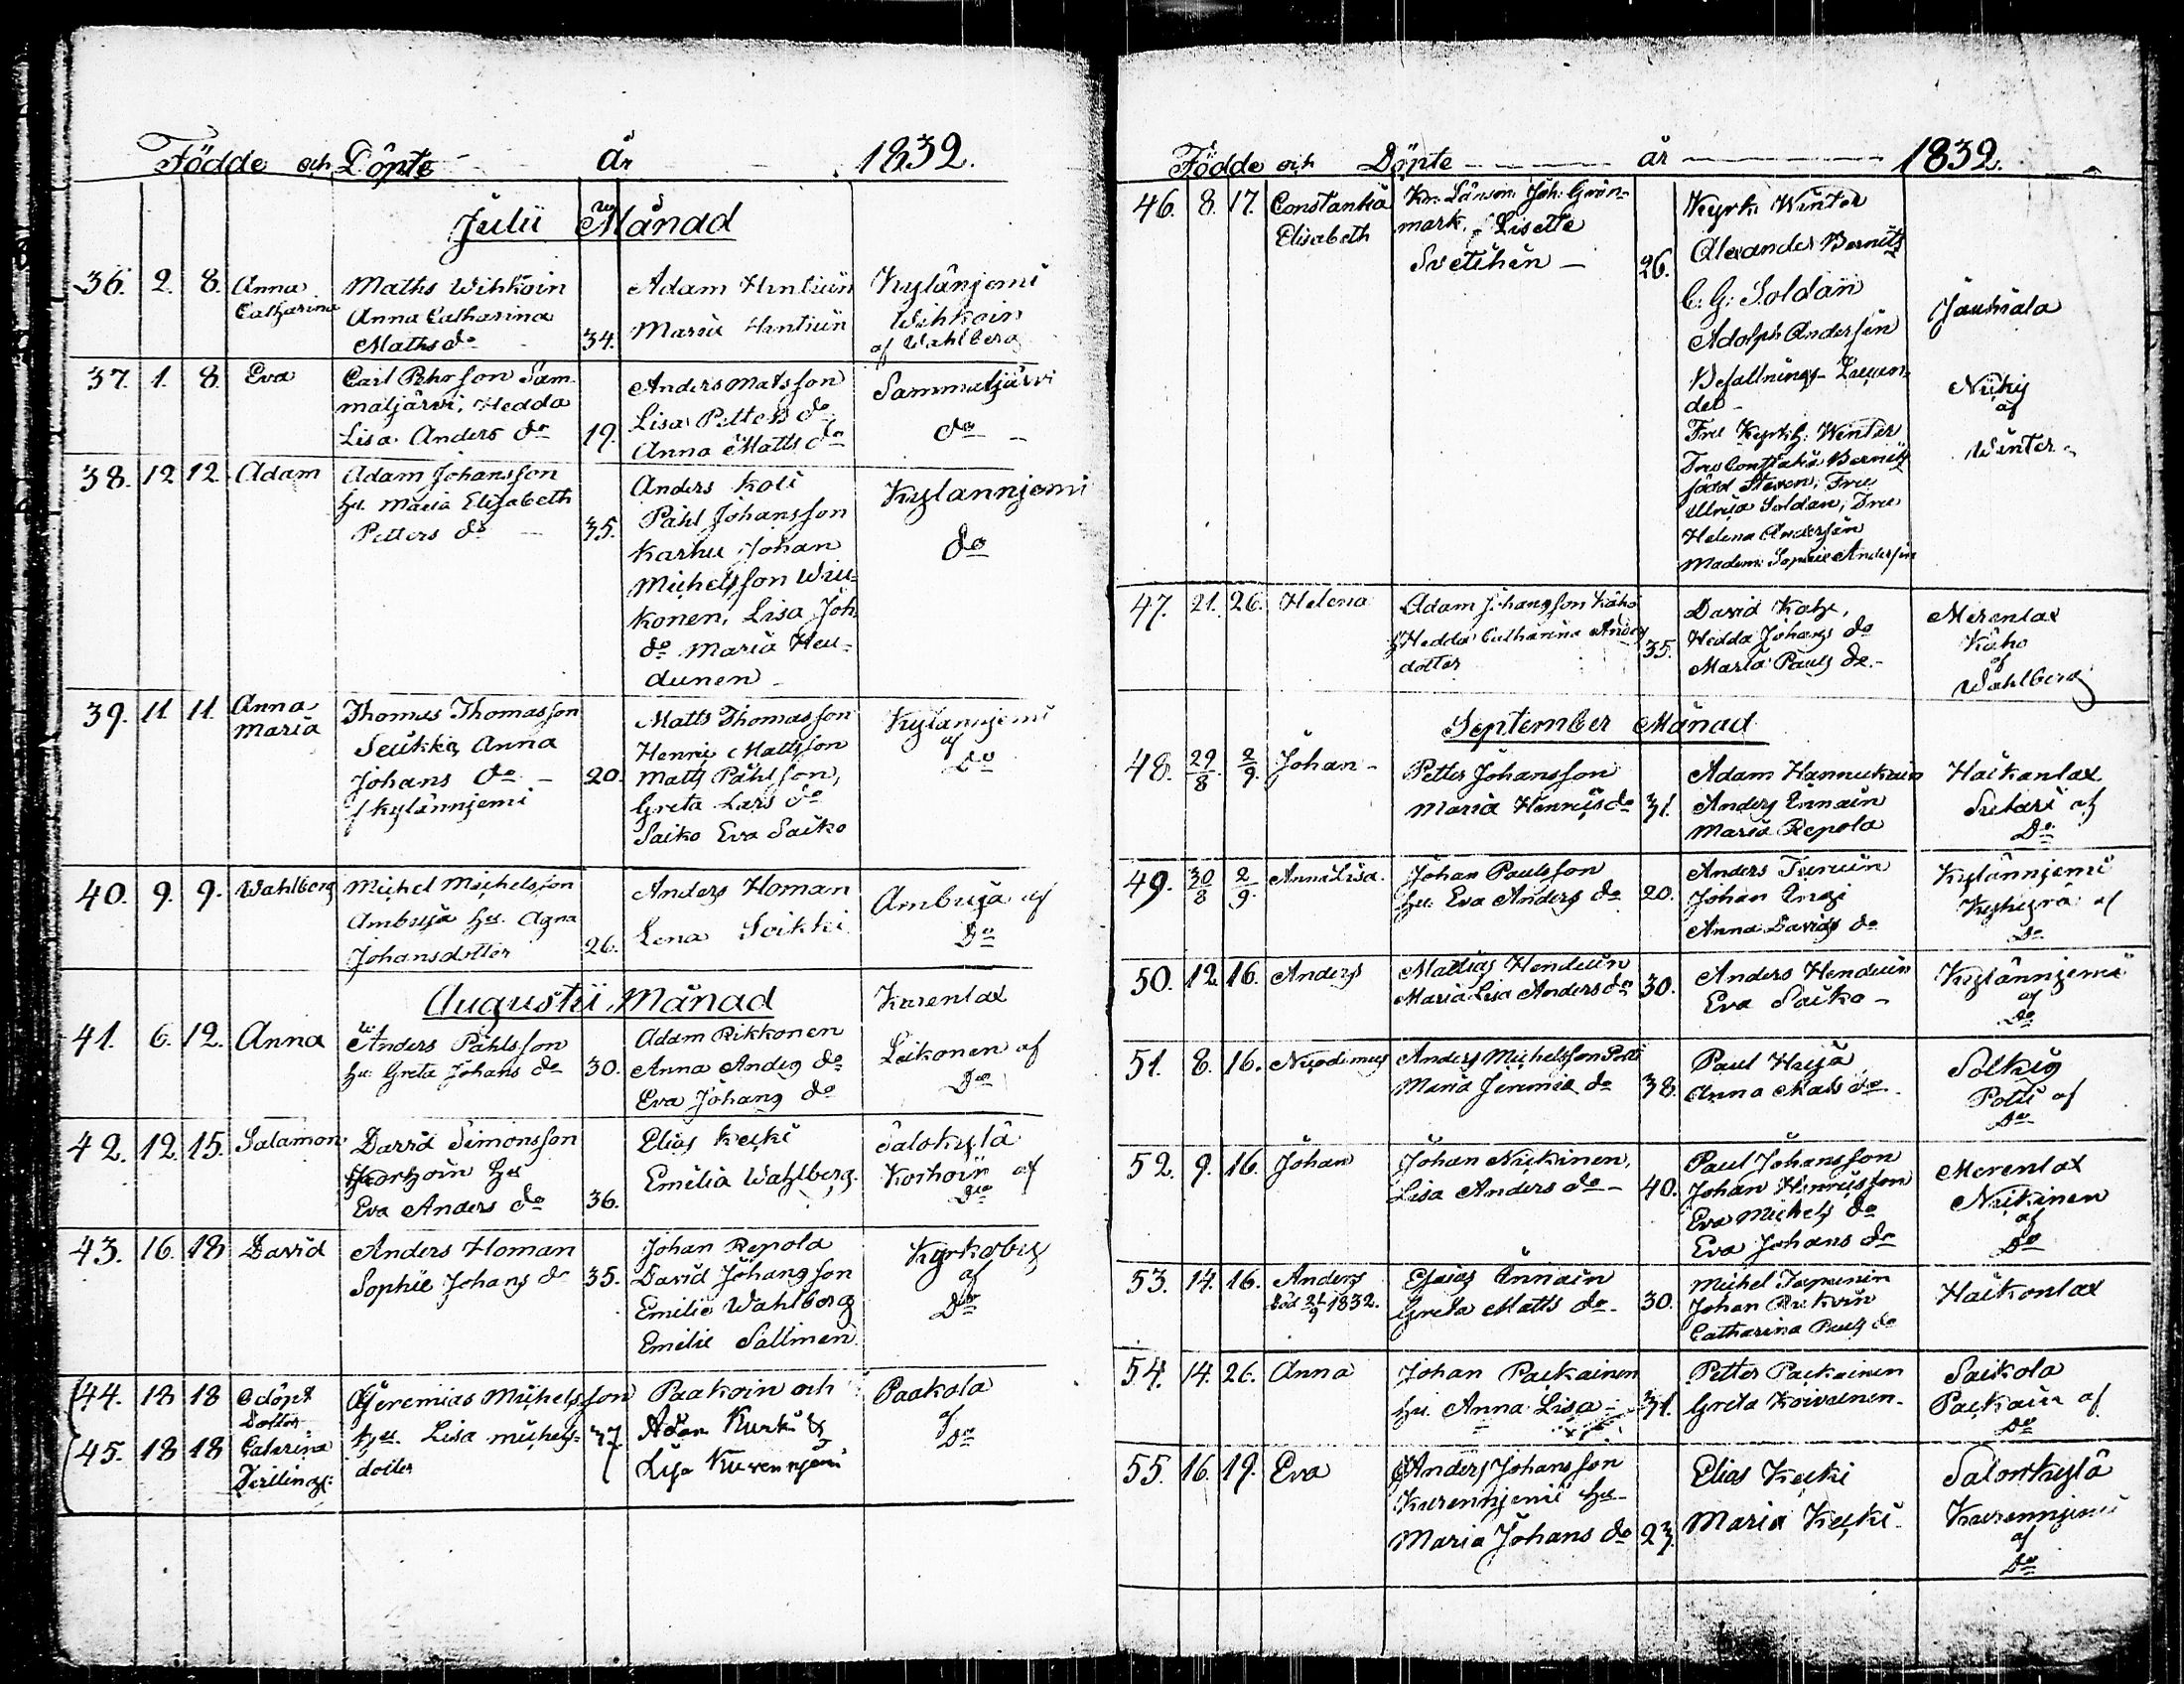 Födde och Döpte år 1832.
Julii Månad
36. 2. 8. Anna Catharina
Maths Wihkoin
Anna Catharina
Maths do 34.
Adam Hintiun
Maria Hintiun
Kylänjemi
Wihkoin
af Wahlberg
37. 1. 8. Eva
Carl Pehrsson Sam
maljärvi, Hedda
Lisa Anders do 19.
Anders Matsson
Lisa Petters do
Anna Matts do
Sammaljärvi
do
38. 12 12. Adam
Adam Johansson
hu. Maria Elisabeth
Petters do 35.
Anders Koli
Påhl Johansson
Karhu Johan
Michelsson Wiu-
konen, Lisa Joh.
do Maria Heu-
dunen
Kylännjemi
do
39. 11. 11. Anna Maria
Thomas Thomasson
Seükka, Anna
Johans do 20.
Kylännjemi
Matts Thomasson
Henric Mattsson
Matts Påhlsson,
Greta Lars do
Saiko Eva Saiko
Kylännjemi
af
Do
40. 9. 9. Wahlberg
Michel Michelsson
Ambuja hu. Agna
Johansdotter 26.
Anders Homan
Lena Soikki
Ambuja af
Do
Augustii Månad
41. 6. 12. Anna
Anders Påhlsson
hu. Greta Johans do 30.
Adam Rikkonen
Anna Anders do
Eva Johans do
Kurenlax
Leikonen af
Do
42. 12. 15. Salamon
David Simonsson
Korhoin hu
Eva Anders do 36.
Elias Keiki
Emilia Wahlberg.
Salokylä
Korhoin af
Do
43. 16. 18 David
Anders Homan
Sophie Johans do 35.
Johan Repola
David Johansson
Emilie Wahlberg
Emilie Sallinen
Kyrkoby
af
Do
44. 18 18 Odöpt Dotter
45. 18 18 Catarina
Jeremias Michelsson
hu. Lisa Michels-
dotter 37
Paakoin och
Adam Kurki &
Lisa Kurennjemi
Paakola
af
Do
Födde och Döpte år 1832.
46. 8. 17. Constantia Elisabeth
Kr. Länsm. Joh. Grön-
mark, Lisette
Svetihin 26.
Kyrkh. Winter
Alexander Bernitz
C. G. Soldan
Adolph Andersin
Befallnings-
Fru Kyrkh. Winter
Fru Constatia Bernitz
född Steven, Fru
Ulrica Soldan, Fru
Helena Andersin
Madem. Sophie Andersin
Jauhiala
Niiky
af
Winter
47. 21. 26. Helena
Adam Johansson Käho
Hedda Catharina Anders
dotter 35.
David Katz,
Hedda Johans do
Maria Pauls do.
Merenlax
Käho
af
Wahlberg
September Månad
48. 29/8 2/9. Johan
Petter Johansson
Maria Henrics do 31.
Adam Hannukain
Anders Ennain
Maria Repola
Haikanlax
Sutari af
Do
49. 30/8 2/9. Anna Lisa.
Johan Paulsson
hu. Eva Anders do 20.
Anders Turuin
Johan
Anna Davids do
Kylännjemi
af
Do
50. 12. 16. Anders
Mattias Henduin
Maria Lisa Anders do 30.
Anders Henduin
Eva Saiko
Kylännjemi
af
Do
51. 8. 16. Nicodimus
Anders Michelsson Potti
Maria Jeremia do 38.
Paul Huja
Anna Mats do
Solkiö
Potti af
Do
52. 9. 16. Johan
Johan Nuikinen,
Lisa Anders do 40.
Paul Johansson
Johan Henricsson
Eva Michels do
Eva Johans do
Merenlax
Nuikinen
af
Do
53. 14. 16. Anders
död 21/9 1832.
Esaias Ennain
Greta Matts do 30.
Michel Tapanin
Johan
Catharina Pauls do
Haikonlax
54. 14. 26. Anna
Johan Packainen
hu. Anna Lisa 31.
Petter Packainen
Greta Koivunen
Saikola
Packain af
Do
55. 16. 19. Eva
Anders Johansson
Kurennjemi hu
Maria Johans do 23.
Elias Keiki
Maria Keiki
Salonkylä
Kurennjemi
af
Do